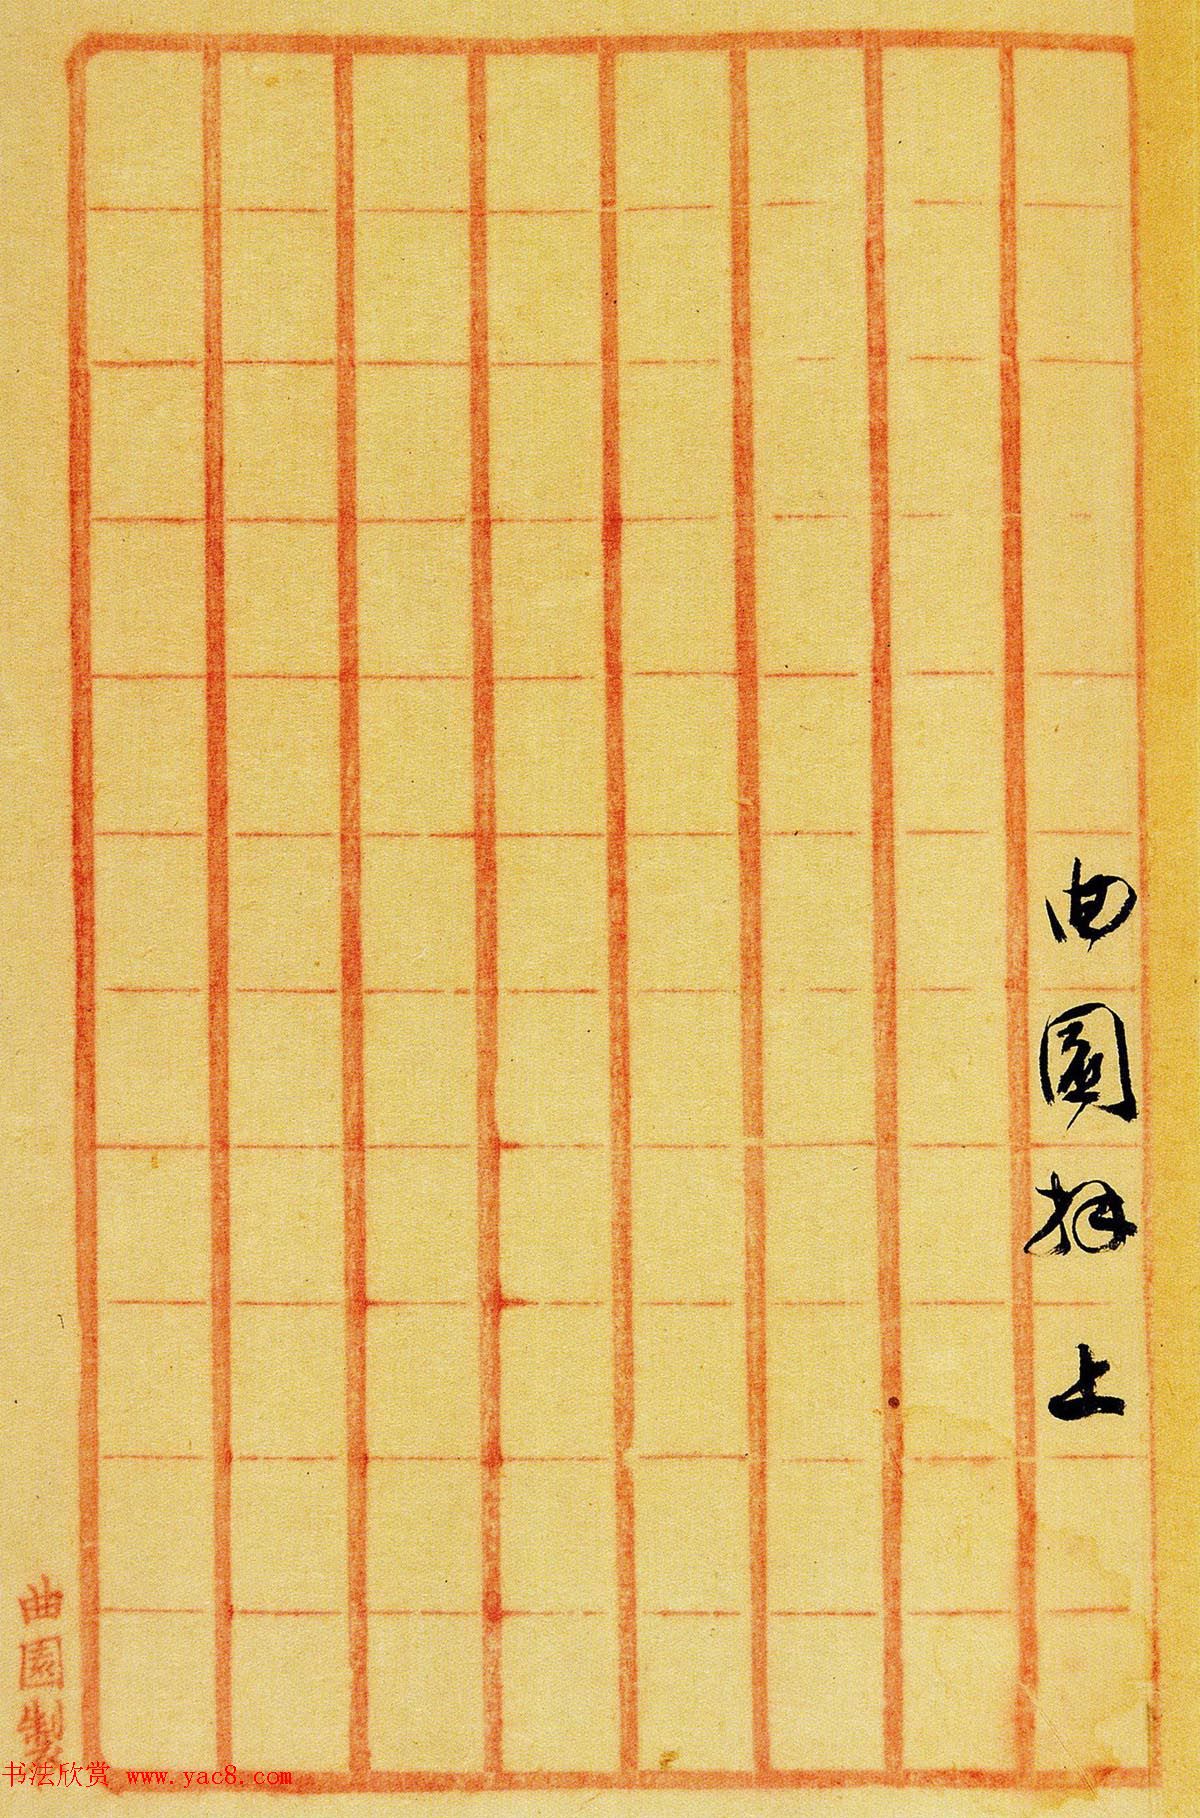 曲園拜上
曲園製
书法欣赏 www.yac8.com